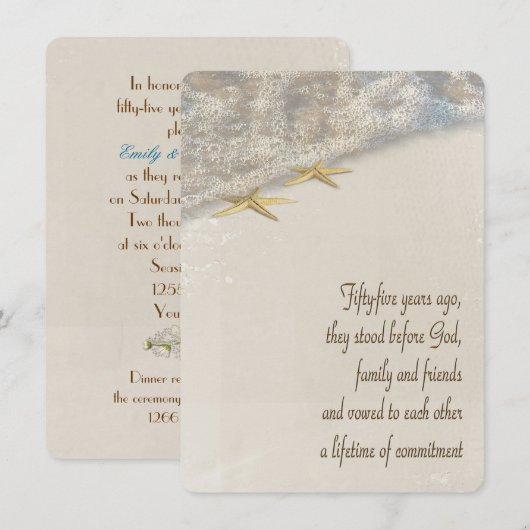 In honor
fifty-five
Emily &
as they
on Saturday
Two thou
at six o'cloc
Seasi
1255
You
Dinner re
the ceremony
1266
Fifty-five years ago,
they stood before God,
family and friends
and vowed to each other
a lifetime of commitment